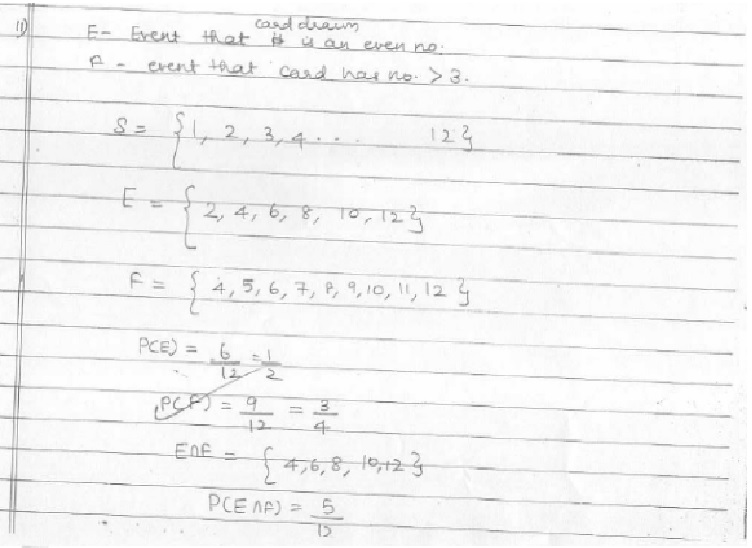 11)
card drawn
E- Event that is an even no.
F - event that card has no. > 3.
S = { 1, 2, 3, 4 . . . 12 }
E = { 2, 4, 6, 8, 10, 12 }
F = { 4, 5, 6, 7, 8, 9, 10, 11, 12 }
P(E) = 6/12 = 1/2
P(F) = 9/12 = 3/4
E∩F = { 4, 6, 8, 10, 12 }
P(E∩F) = 5/12